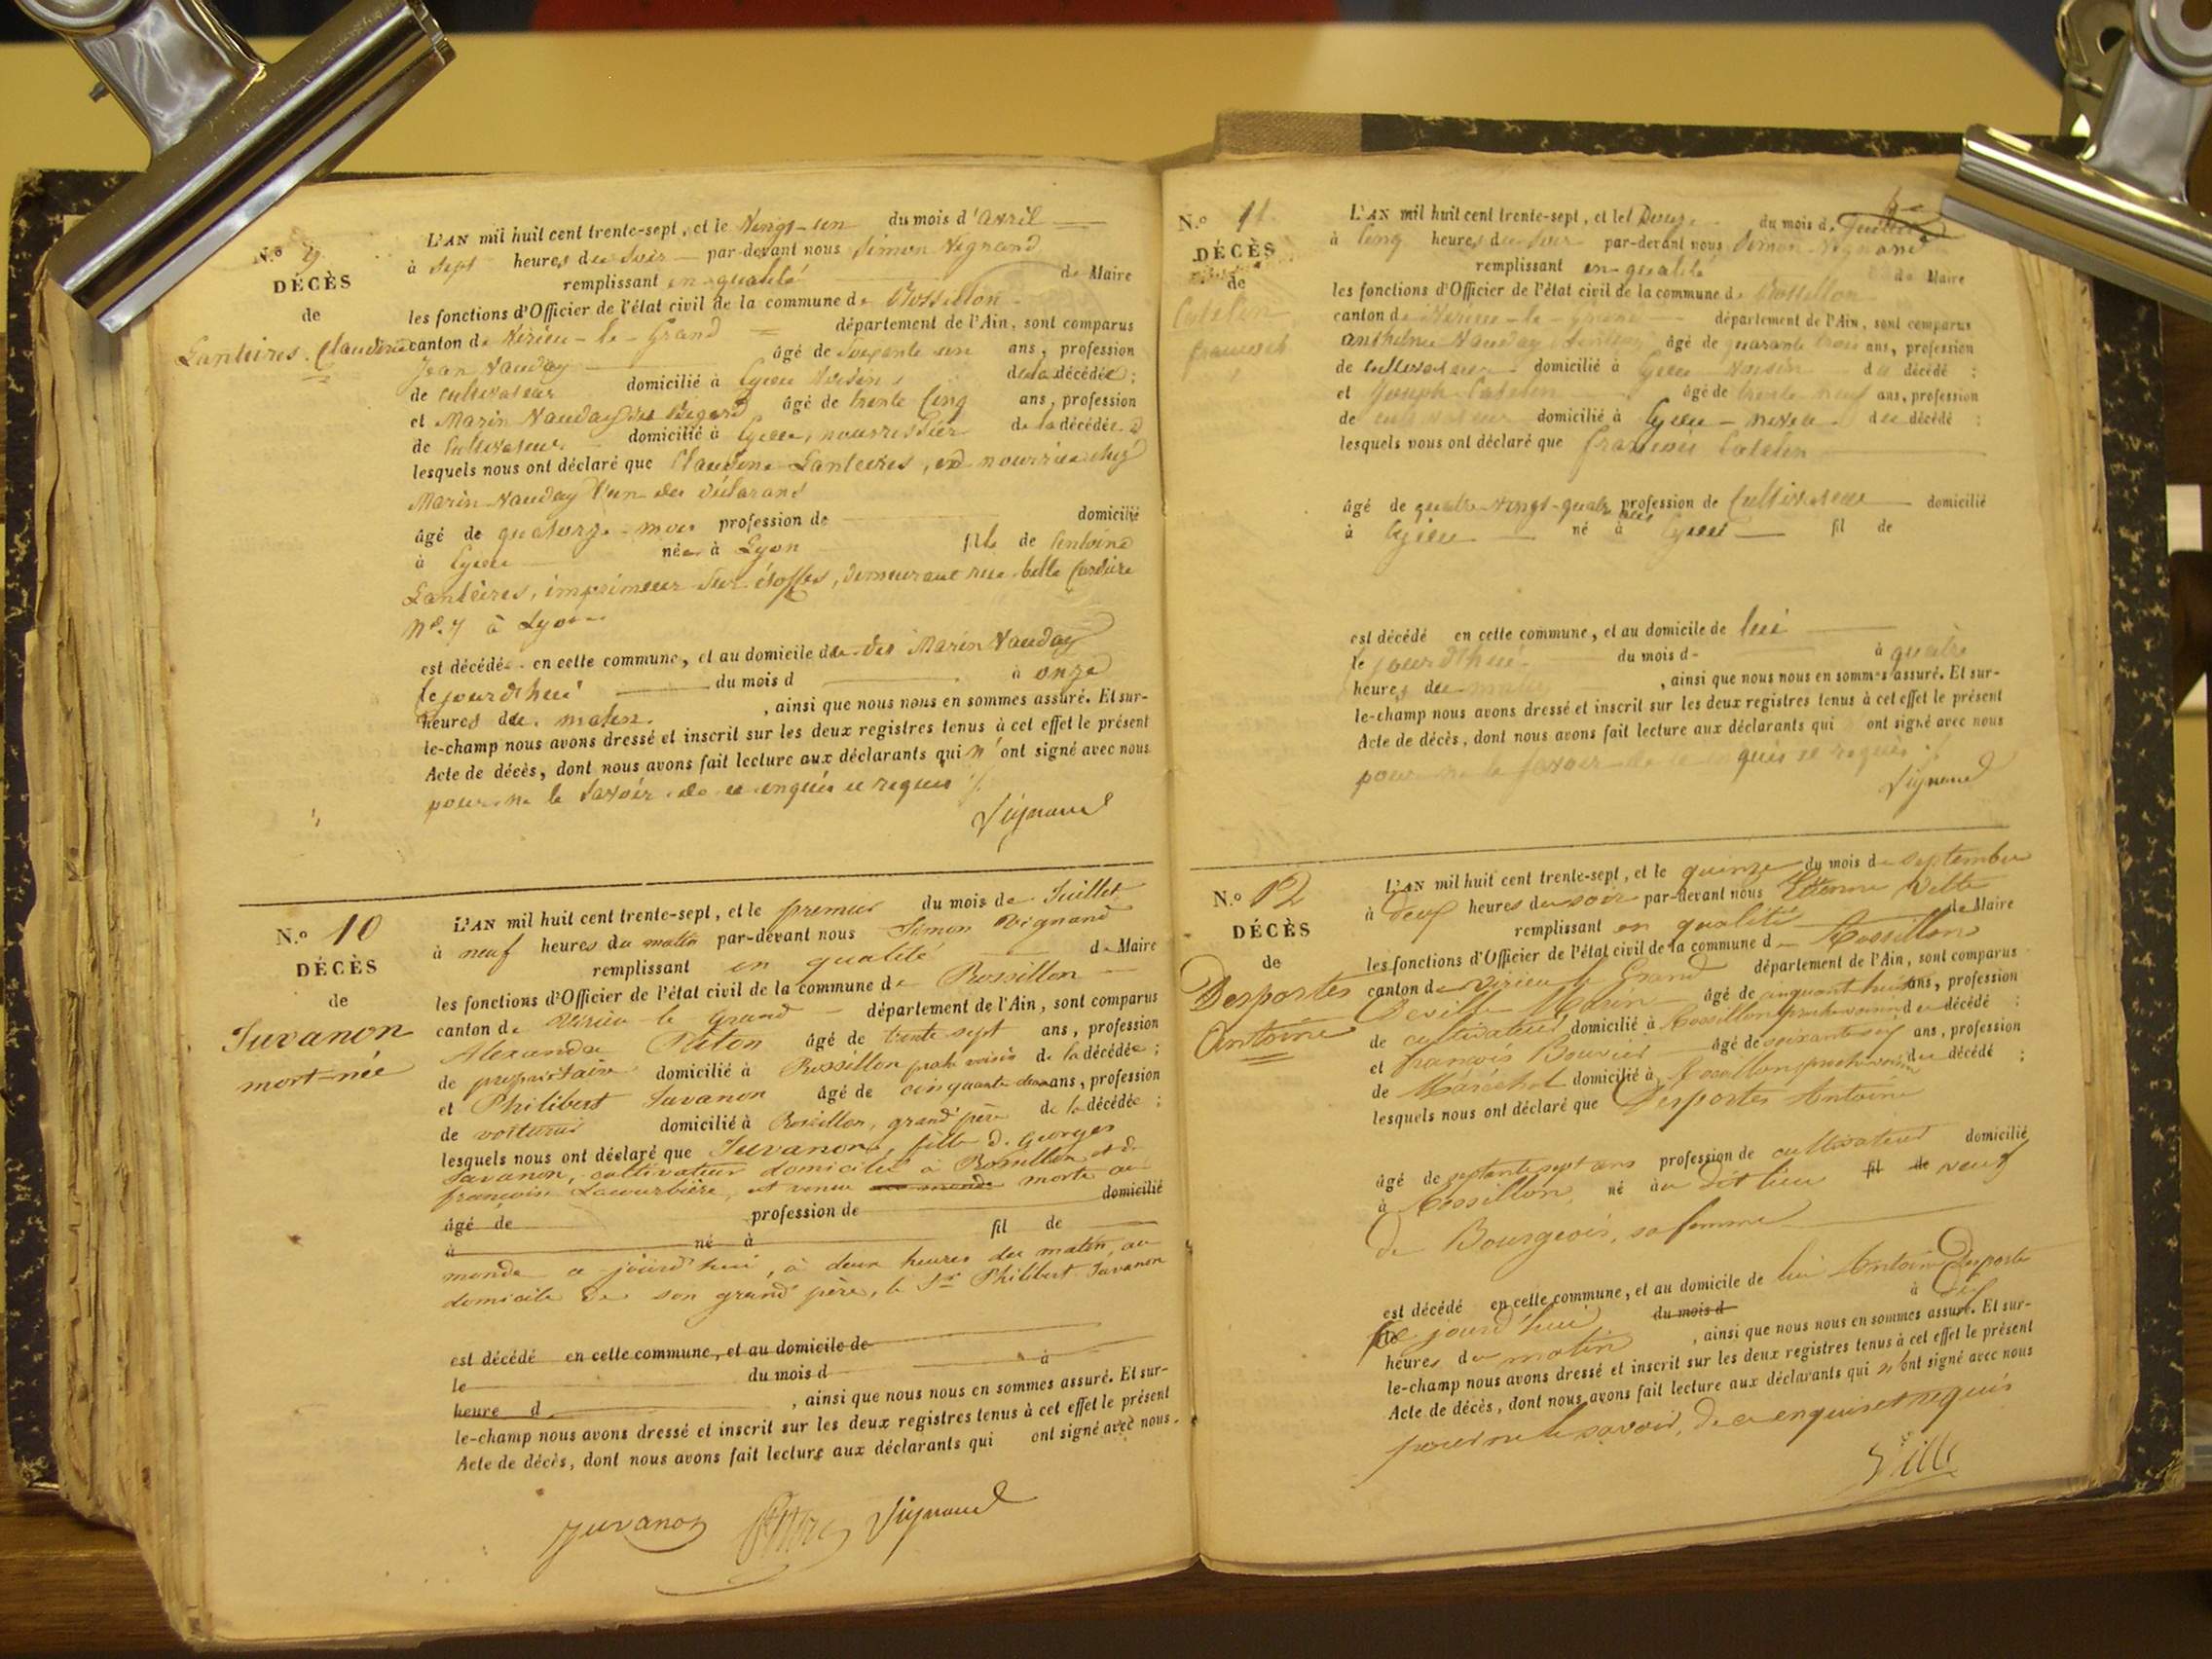 N.º 9
DÉCÈS
de
Lanteires Claudine
L'AN mil huit cent trente-sept, et le Vingt-un du mois d'avril
à Sept heures du Soir par-devant nous Simon Vignand
remplissant en qualité de Maire
les fonctions d'Officier de l'état civil de la commune de Rossillon
canton de Virieu-le-Grand département de l'Ain, sont comparus
Jean Nauday âgé de Soixante un ans, profession
de cultivateur domicilié à Cyeu Voisin de la décédée ;
et Marin Nauday âgé de trente Cinq ans, profession
de Cultivateur domicilié à Cyeu, nourrissier de la décédée
lesquels nous ont déclaré que Claudine Lanteires, nourrie chez
Marin Nauday l'un des déclarans
âgé de quatorze mois profession de domicilié
à Cyeu née à Lyon fille de Antoine
Lanteires, imprimeur Sur étoffes, demeurant rue belle Cordière
Nº. 7 à Lyon
est décédée en cette commune, et au domicile du dit Marin Nauday
le jourd'hui du mois d à onze
heures du matin. , ainsi que nous nous en sommes assuré. Et sur-
le-champ nous avons dressé et inscrit sur les deux registres tenus à cet effet le présent
Acte de décès, dont nous avons fait lecture aux déclarants qui n'ont signé avec nous
pour ne le Savoir de ce enquis et requis
Vignand
N.º 10
DÉCÈS
de
Juvanon
mort-née
L'AN mil huit cent trente-sept, et le premier du mois de Juillet
à neuf heures du matin par-devant nous Simon Vignand
remplissant en qualité de Maire
les fonctions d'Officier de l'état civil de la commune de Rossillon
canton de Virieu-le-Grand département de l'Ain, sont comparus
Alexandre âgé de trente sept ans, profession
de propriétaire domicilié à Rossillon proche voisin de la décédée ;
et Philibert Juvanon âgé de cinquante deux ans, profession
de voiturier domicilié à Rossillon, grand père de la décédée ;
lesquels nous ont déclaré que Juvanon, fille de Georges
Juvanon, cultivateur domicilié à Rossillon et de
françoise est venue au monde morte au
âgé de profession de domicilié
à né à fil de
monde ce jourd'hui, à deux heures du matin, au
domicile de son grand père, le Sr Philibert Juvanon
est décédé en cette commune, et au domicile de
le du mois d à
heure d , ainsi que nous nous en sommes assuré. Et sur-
le-champ nous avons dressé et inscrit sur les deux registres tenus à cet effet le présent
Acte de décès, dont nous avons fait lecture aux déclarants qui ont signé avec nous.
Juvanon Vignand
N.º 11
DÉCÈS
de
Catelin
francois
L'AN mil huit cent trente-sept, et le Douze du mois d
à Cinq heures du Soir par-devant nous Simon Vignand
remplissant en qualité de Maire
les fonctions d'Officier de l'état civil de la commune de Rossillon
canton de Virieu-le-grand département de l'Ain, sont comparus
anthelme Nauday âgé de quarante trois ans, profession
de cultivateur domicilié à Cyeu Voisin du décédé :
et Joseph Catelin âgé de trente neuf ans, profession
de cultivateur domicilié à Cyeu neveu du décédé :
lesquels nous ont déclaré que François Catelin
âgé de quatre-vingt-quatre ans profession de Cultivateur domicilié
à Cyeu né à Cyeu fil de
est décédé en cette commune, et au domicile de lui
le jourd'hui du mois d à quatre
heures du matin , ainsi que nous nous en sommes assuré. Et sur-
le-champ nous avons dressé et inscrit sur les deux registres tenus à cet effet le présent
Acte de décès, dont nous avons fait lecture aux déclarants qui ont signé avec nous
pour ne le savoir de ce enquis et requis
Vignand
N.º 12
DÉCÈS
de
Desportes
Antoine
L'AN mil huit cent trente-sept, et le quinze du mois de septembre
à deux heures du soir par-devant nous Etienne
remplissant en qualité de Maire
les fonctions d'Officier de l'état civil de la commune de Rossillon
canton de Virieu le Grand département de l'Ain, sont comparus
Deville Marin âgé de cinquant huit ans, profession
de cultivateur domicilié à Rossillon proche voisin du décédé :
et françois Bouvier âgé de soixante six ans, profession
de Maréchal domicilié à Rossillon proche voisin du décédé :
lesquels nous ont déclaré que Desportes Antoine
âgé de septante sept ans profession de cultivateur domicilié
à Rossillon né au dit lieu fil de veuf
de Bourgeois, sa femme
est décédé en cette commune, et au domicile de lui Antoine Desportes
le jourd'hui du mois d à dix
heures du matin , ainsi que nous nous en sommes assuré. Et sur-
le-champ nous avons dressé et inscrit sur les deux registres tenus à cet effet le présent
Acte de décès, dont nous avons fait lecture aux déclarants qui n'ont signé avec nous
pour ne le savoir, de ce enquis et requis